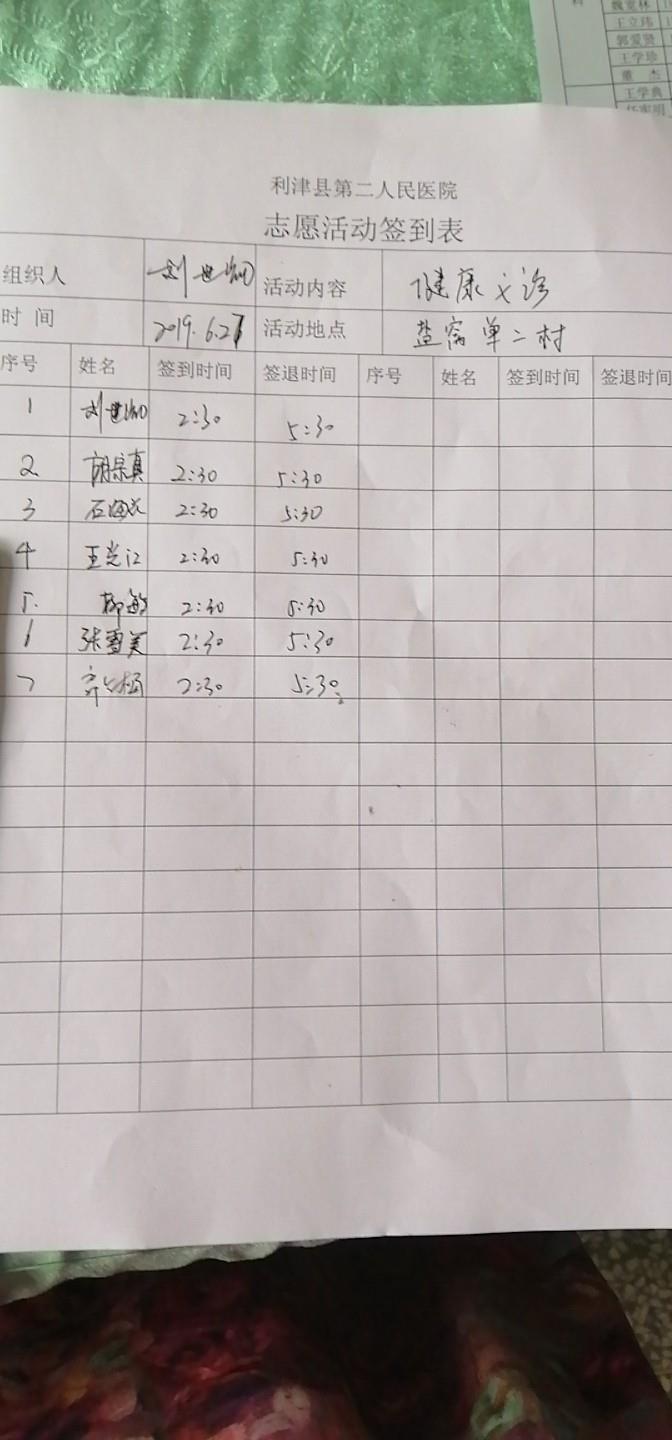 科
魏宽林
王立玮
郭爱贤
王学珍
董 杰
王学典
任宪明
利津县第二人民医院
志愿活动签到表
组织人 刘世 活动内容 健康义诊
时 间 2019.6.27 活动地点 盐窝单二村
序号 姓名 签到时间 签退时间 序号 姓名 签到时间 签退时间
1 刘世 2:30 5:30
2 胡宗真 2:30 5:30
3 石海 2:30 5:30
4 王光江 2:30 5:30
5. 柳敏 2:30 5:30
6 张雪美 2:30 5:30
7 2:30 5:30